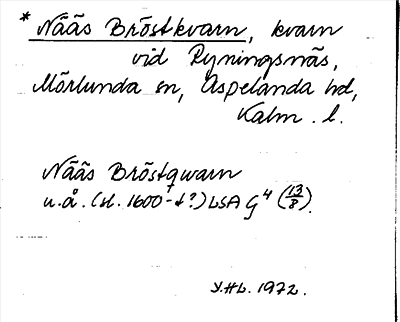 * Nääs Bröstkvarn, kvarn
vid Ryningsnäs,
Mörlunda sn, Aspelanda hd,
Kalm. l.
Nääs Bröstqwarn
u.å. (sl. 1600-t?) LSA G4 (13/8).
Y.HL. 1972.